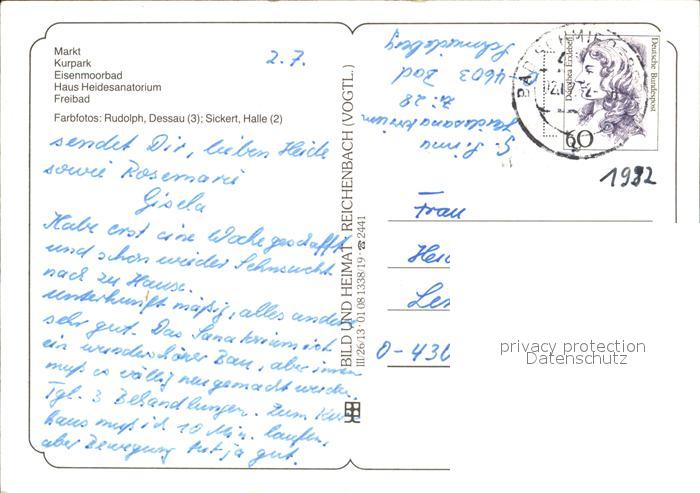 Markt
Kurpark
Eisenmoorbad
Haus Heidesanatorium
Freibad
Farbfotos: Rudolph, Dessau (3); Sickert, Halle (2)
2.7.
sendet Dir, lieben Heide
sowie Rosemarie
Gisela
Habe erst eine Woche geschafft
und schon wieder Sehnsucht
nach zu Hause.
Unterkunft mäßig, alles andere
sehr gut. Das Sanatorium ist
ein wunderschöner Bau, aber innen
muß es völlig neu gemacht werden.
Tgl. 3 Behandlungen. Zum Kur
haus muß ich 10 Min. laufen,
aber Bewegung tut ja gut.
BILD UND HEIMAT · REICHENBACH (VOGTL.)
III/26/13 · 01 08 1338/19 · ☎ 2441
G.
Heidesanatorium
Z. 28
4603 Bad
Schmiedeberg
BAD SCHMIED
Dorothea Erxleben
Deutsche Bundespost
60
1992
Frau
Hei
Les
O-430
privacy protection
Datenschutz